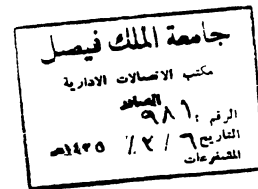 جامعة الملك فيصل
مكتب الاتصالات الادارية
الصادر
الرقم : ٩٨١
التاريخ ٦ / ٣ / ١٤٢٥هـ
المتفرعات